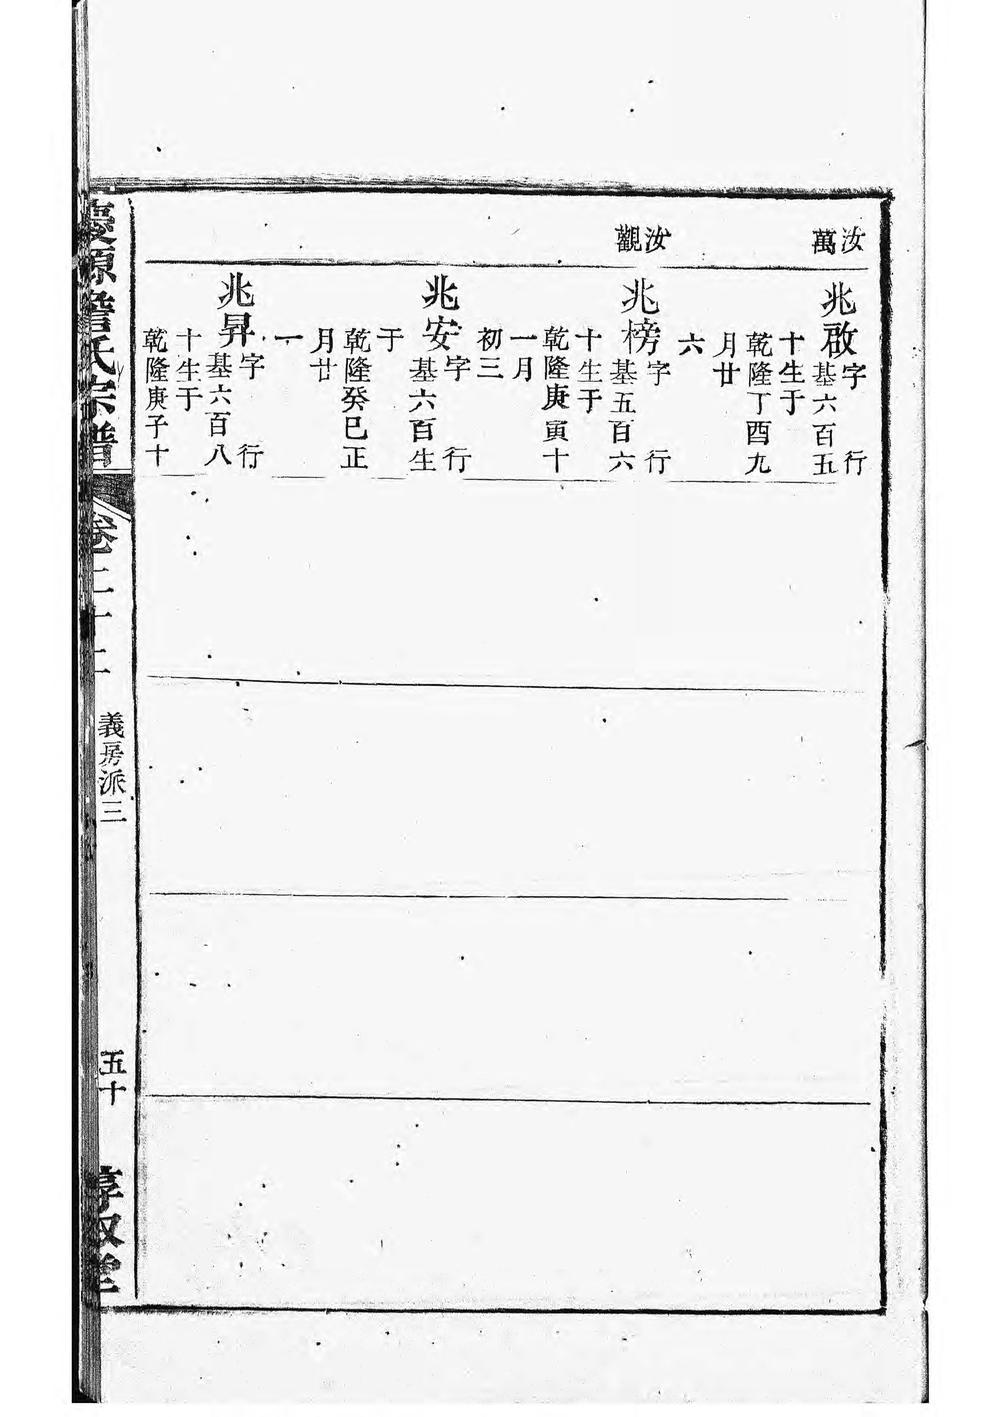 汝萬
兆啟字　行
基六百五
十生于
乾隆丁酉九
月廿
六
汝觀
兆榜字　行
基五百六
十生于
乾隆庚寅十
一月
初三
兆安字　行
基六百生
于
乾隆癸巳正
月廿
一
兆昇字　行
基六百八
十生于
乾隆庚子十
慶源詹氏宗譜
卷二十二
義房派三
五十
惇叙堂